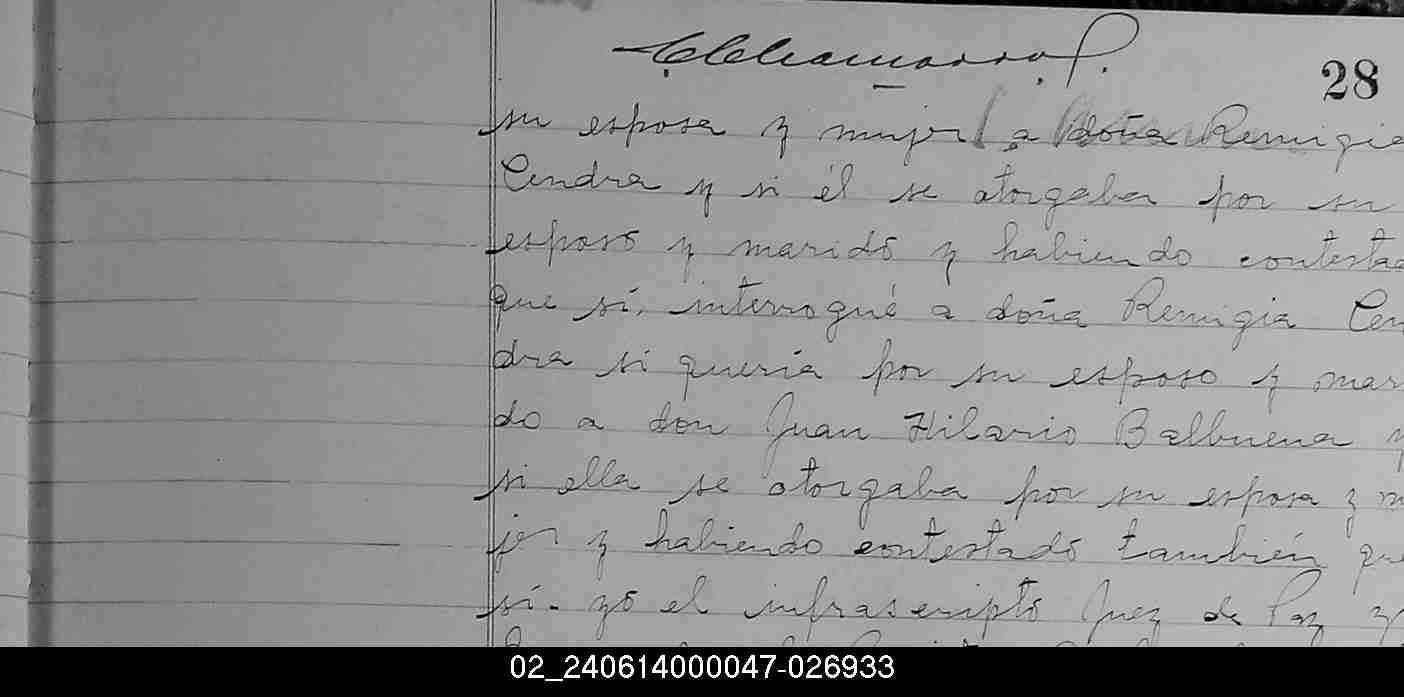 28
su esposa y mujer a doña Remigia
Cendra y si él se otorgaba por su
esposo y marido y habiendo contestad
que sí, interrogué a doña Remigia Cen
dra si quería por su esposo y mari
do a don Juan Hilario Balbuena y
si ella se otorgaba por su esposa y mu
jer y habiendo contestado también que
sí- yo el infrascripto Juez de Paz y
02_240614000047-026933